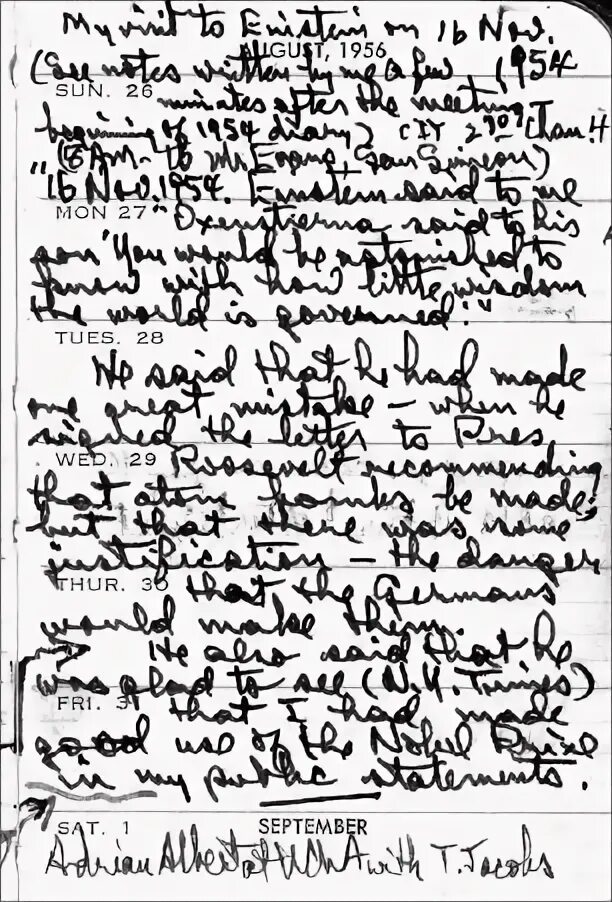 My visit to Einstein on 16 Nov.
AUGUST, 1956
(See notes written by me a few 1954
SUN. 26
minutes after the meeting,
beginning of 1954 diary)
(5 AM - to Mr. Evans, San Simeon)
"16 Nov. 1954. Einstein said to me
MON 27
"Oxenstierna said to his
son 'You would be astonished to
know with how little wisdom
the world is governed.'"
TUES. 28
He said that he had made
one great mistake - when he
signed the letter to Pres.
WED. 29
Roosevelt recommending
that atom bombs be made;
but that there was some
justification - the danger
THUR. 30
that the Germans
would make them.
He also said that he
was glad to see (N.Y. Times)
FRI. 31
that I had made
good use of the Nobel Prize
in my public statements.
SAT. 1
SEPTEMBER
Adrian Albert with T. Jacobs